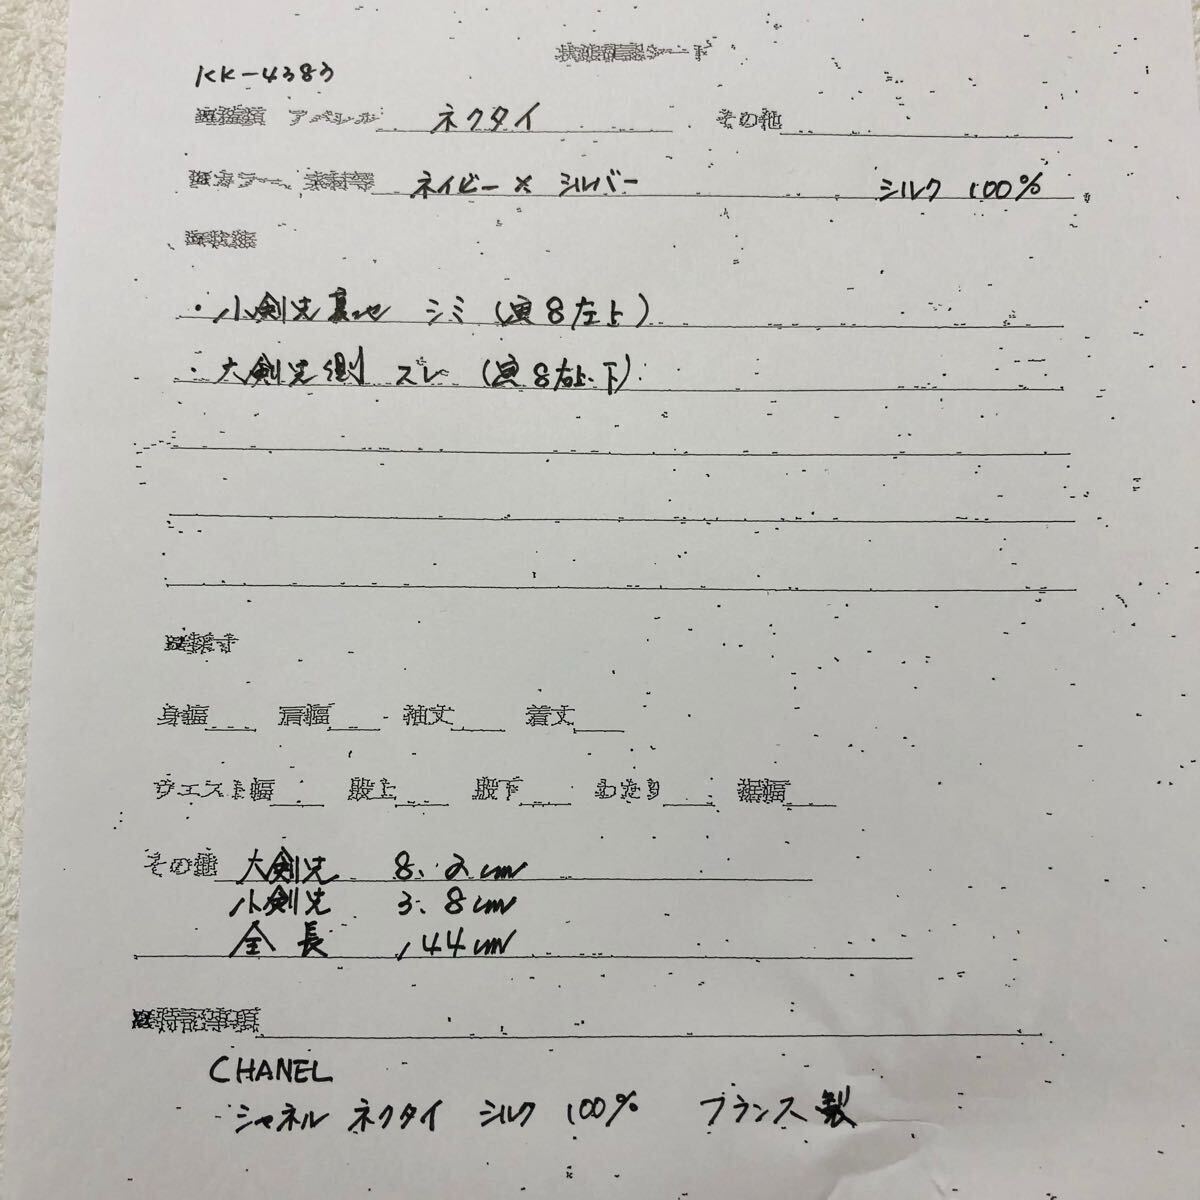 状態確認シート
KK-4383
アパレル ネクタイ その他
カラー、素材等 ネイビー × シルバー シルク 100%
・小剣先裏地 シミ (写8左上)
・大剣先側 スレ (写8右上・下)
採寸
身幅 肩幅 袖丈 着丈
ウエスト幅 股上 股下 わたり 裾幅
その他 大剣先 8.2cm
小剣先 3.8cm
全長 144cm
特記事項
CHANEL
シャネル ネクタイ シルク 100% フランス製